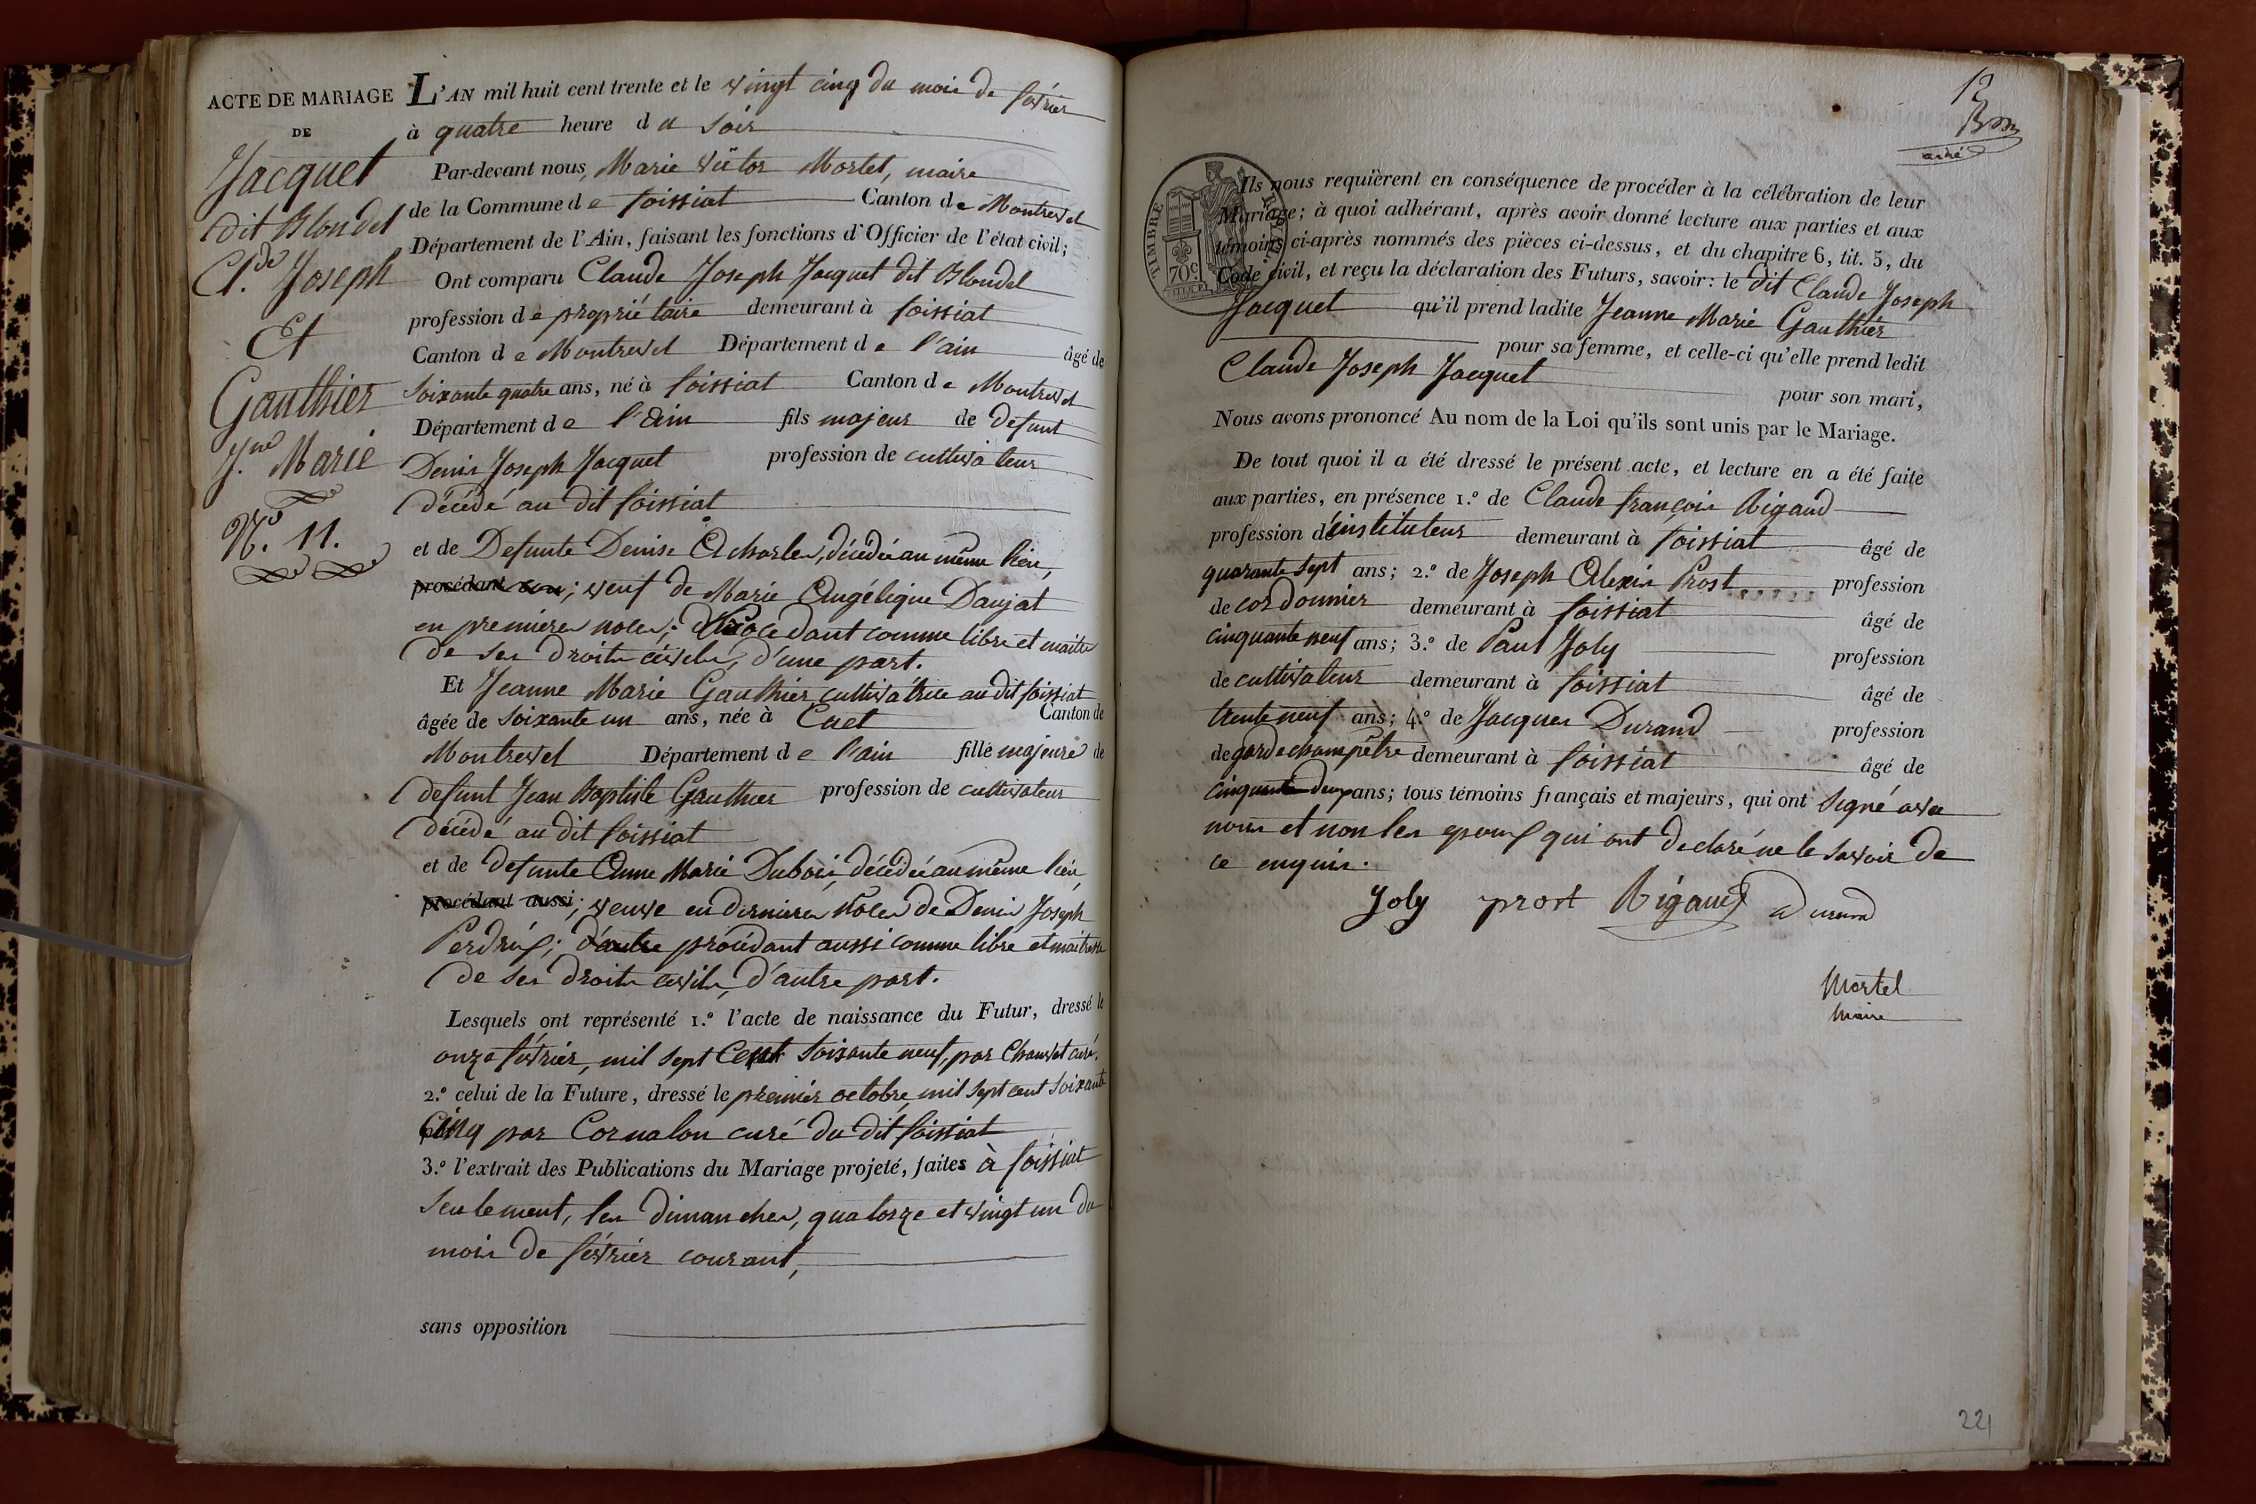 ACTE DE MARIAGE
DE
Jacquet
dit Blondel
Cl.de Joseph
Et
Gauthier
J.ne Marie
N.o 11.
L'AN mil huit cent trente et le vingt cinq du mois de février
à quatre heure du soir
Par-devant nous, Marie Victor Mortel, maire
de la Commune de foissiat Canton de Montrevel
Département de l'Ain, faisant les fonctions d'Officier de l'état civil;
Ont comparu Claude Joseph Jacquet dit Blondel
profession de propriétaire demeurant à foissiat
Canton de Montrevel Département de l'ain âgé de
soixante quatre ans, né à foissiat Canton de Montrevel
Département de l'ain fils majeur de defunt
Denis Joseph Jacquet profession de cultivateur
décédé au dit foissiat
et de Defunte Denise Acharles, décédée au même lieu,
procédant ; veuf de Marie Angélique Daujat
en premières noces; procedant comme libre et maitre
de ses droits civils, d'une part.
Et Jeanne Marie Gauthier cultivatrice au dit foissiat
âgée de soixante un ans, née à Cuet Canton de
Montrevel Département de l'ain fille majeure de
defunt Jean Baptiste Gauthier profession de cultivateur
décédé au dit foissiat
et de defunte Anne Marie Dubois, décédée au même lieu,
procédant aussi; veuve en dernieres nôces de Denis Joseph
Perdrix; d'autre procédant aussi comme libre et maitresse
de ses droits civils, d'autre part.
Lesquels ont représenté 1.o l'acte de naissance du Futur, dressé le
onze février, mil sept cent soixante neuf, par Chauvet curé.
2.o celui de la Future, dressé le premier octobre mil sept cent soixante
cinq par Cornalon curé du dit foissiat
3.o l'extrait des Publications du Mariage projeté, faites à foissiat
seulement, les dimanches, quatorze et vingt un du
mois de février courant,
sans opposition
12
TIMBRE ROYAL.
70c
Ils nous requièrent en conséquence de procéder à la célébration de leur
Mariage; à quoi adhérant, après avoir donné lecture aux parties et aux
témoins ci-après nommés des pièces ci-dessus, et du chapitre 6, tit. 5, du
Code civil, et reçu la déclaration des Futurs, savoir: le dit Claude Joseph
Jacquet qu'il prend ladite Jeanne Marie Gauthier
pour sa femme, et celle-ci qu'elle prend ledit
Claude Joseph Jacquet pour son mari,
Nous avons prononcé Au nom de la Loi qu'ils sont unis par le Mariage.
De tout quoi il a été dressé le présent acte, et lecture en a été faite
aux parties, en présence 1.o de Claude françois Rigaud
profession d'instituteur demeurant à foissiat âgé de
quarante sept ans; 2.o de Joseph Alexis Prost profession
de cordonnier demeurant à foissiat âgé de
cinquante neuf ans; 3.o de Paul Joly profession
de cultivateur demeurant à foissiat âgé de
trente neuf ans; 4.o de Jacques Durand profession
de garde champêtre demeurant à foissiat âgé de
cinquante deux ans; tous témoins français et majeurs, qui ont signé avec
nous et non les epoux qui ont declaré ne le savoir de
ce enquis.
Joly prost Rigaud Durand
Mortel
Maire
221